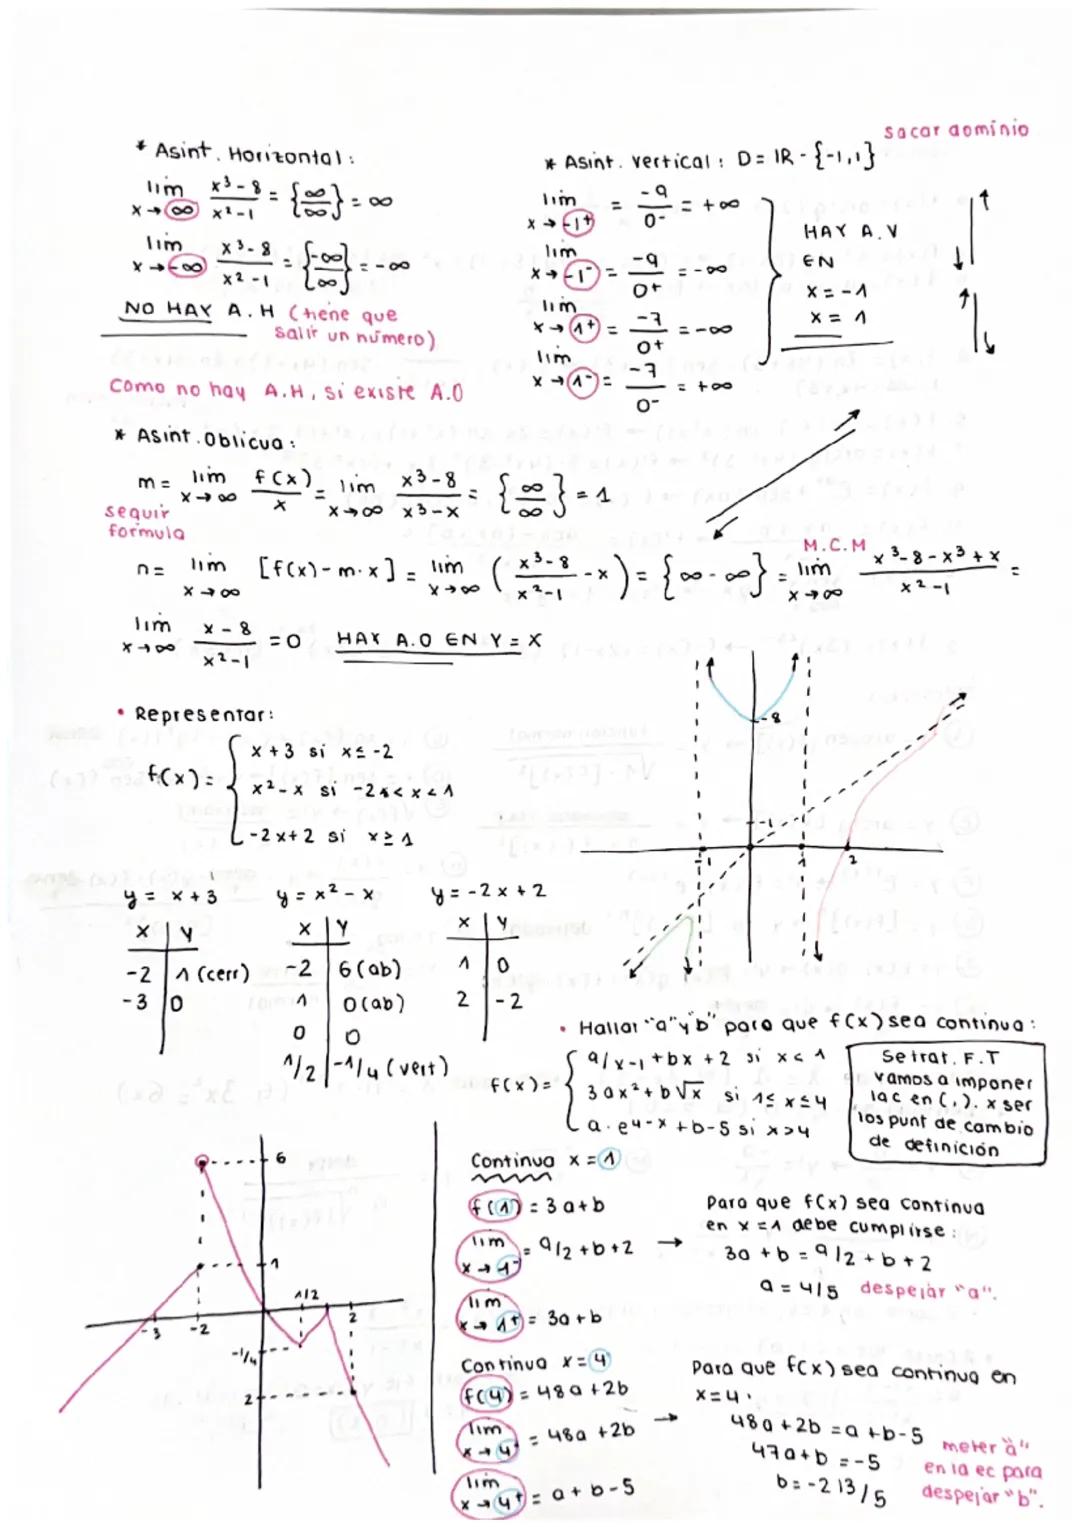 sacar dominio
* Asint. Horizontal:
lim x→∞ x³-8 / x²-1 = {∞/∞} = ∞
lim x→-∞ x³-8 / x²-1 = {-∞/∞} = -∞
NO HAY A.H (tiene que
salir un número)
Como no hay A.H, si existe A.O
* Asint. vertical: D= IR - {-1,1}
lim x→-1⁺ = -9/0⁻ = +∞
lim x→-1⁻ = -9/0⁺ = -∞
lim x→1⁺ = -7/0⁺ = -∞
lim x→1⁻ = -7/0⁻ = +∞
HAY A.V
EN
x = -1
x = 1
* Asint. Oblicua:
m = lim x→∞ f(x)/x = lim x→∞ x³-8 / x³-x = {∞/∞} = 1
seguir
formula
n = lim x→∞ [f(x)-m·x] = lim x→∞ (x³-8 / x²-1 - x) = {∞-∞} = M.C.M lim x→∞ x³-8-x³+x / x²-1 =
lim x→∞ x-8 / x²-1 = 0 HAY A.O EN Y = X
-8
-1
-1 1 2
• Representar:
f(x) = { x+3 si x≤-2
x²-x si -2<x<1
-2x+2 si x≥1
y = x+3
x | y
-2 | 1 (cerr)
-3 | 0
y = x²-x
x | y
-2 | 6 (ab)
1 | 0 (ab)
0 | 0
1/2 | -1/4 (vert)
y = -2x+2
x | y
1 | 0
2 | -2
6
1
1/2
-3 -2 2
-1/4
2
• Hallar "a" y "b" para que f(x) sea continua:
f(x) = { 9/x-1 + bx + 2 si x<1
3ax² + b√x si 1≤x≤4
a·e⁴⁻ˣ + b-5 si x>4
Se trat. F.T
vamos a imponer
la c en (,). x ser
los punt de cambio
de definición
Continua x = 1
f(1) = 3a+b
lim x→1⁻ = 9/2+b+2 →
lim x→1⁺ = 3a+b
Para que f(x) sea continua
en x = 1 debe cumplirse:
3a+b = 9/2+b+2
a = 4/5 despejar "a".
Continua x = 4
f(4) = 48a+2b
lim x→4⁻ = 48a+2b →
lim x→4⁺ = a+b-5
Para que f(x) sea continua en
x=4.
48a+2b = a+b-5
47a+b = -5
b = -213/5
meter "a"
en la ec para
despejar "b".